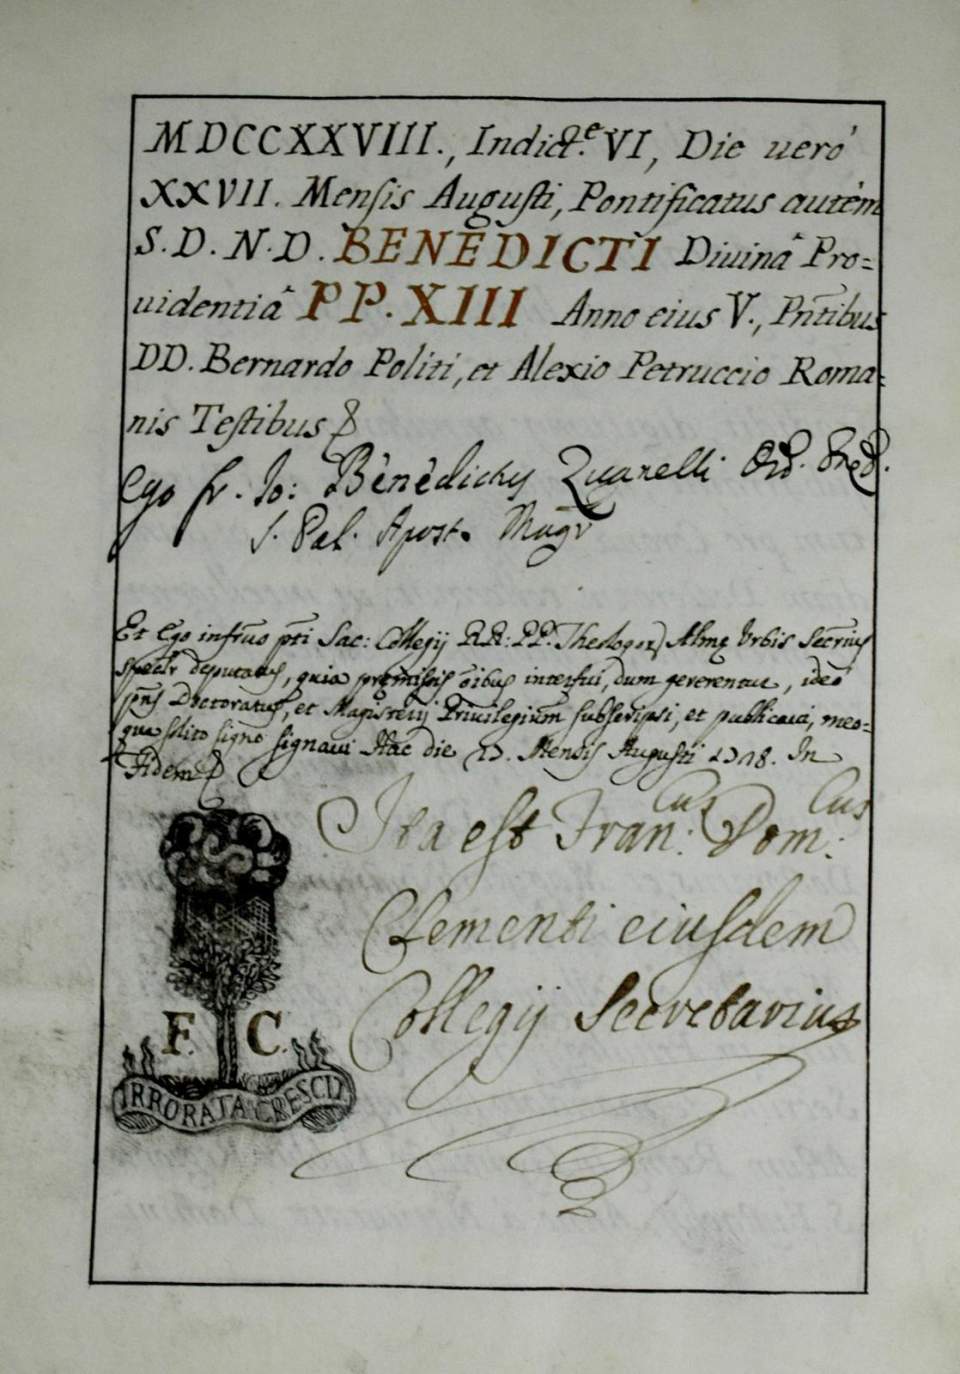 MDCCXXVIII., Indict.e VI, Die uerò
XXVII. Mensis Augusti, Pontificatus autèm
S. D. N. D. BENEDICTI Diuinâ Pro=
uidentiâ PP. XIII Anno eius V., Pñtibus
DD. Bernardo Politi, et Alexio Petruccio Roma=
nis Testibus
Ego fr. Io: Benedictus Zuanelli Ord. Pred.
S. Pal. Apost. Magr
Et Ego infrũs pti Sac: Collegij RR: PP. Theologor Almę Vrbis Secrius
deputatus, quia premissis oibus interfui, dum gererentur, ideò
pñs Doctoratus, et Magisterij Priuilegium subscripsi, et publicaui, meo=
que solito signo signaui Hac die 27. Mensis Augusti 1728. In
Fidem
Ita est Fran:cus Dom:cus
Clementi eiusdem
Collegij Secretarius
F. C.
IRRORATA CRESCIT